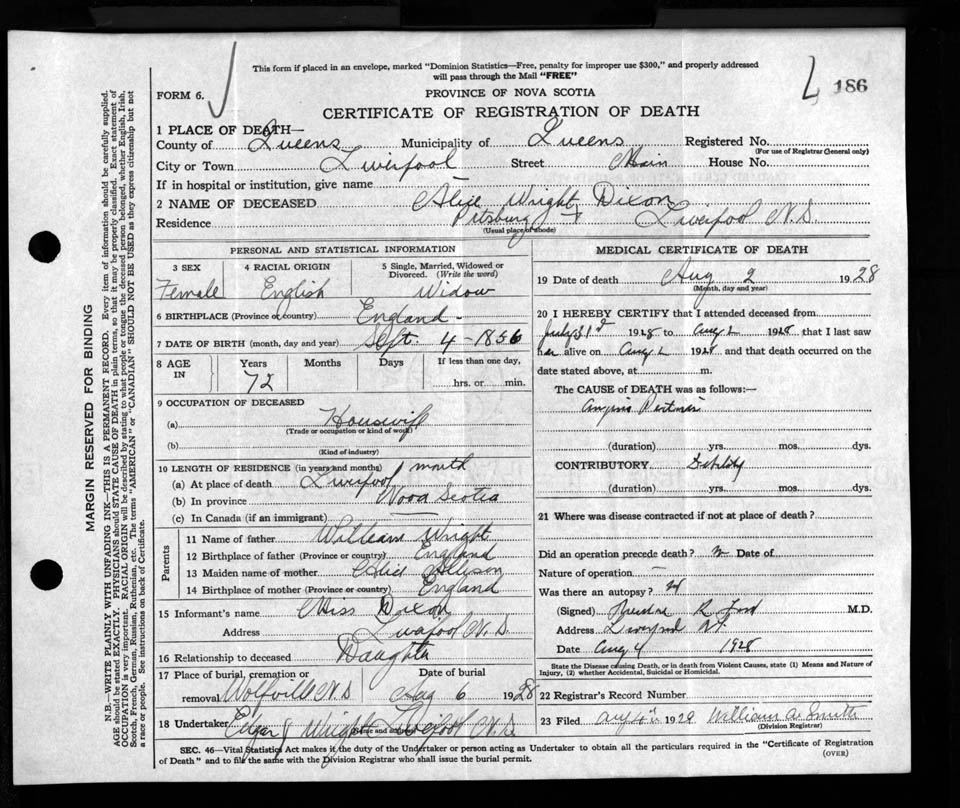 This form if placed in an envelope, marked "Dominion Statistics—Free, penalty for improper use $300," and properly addressed
will pass through the Mail "FREE"
FORM 6.
PROVINCE OF NOVA SCOTIA
186
CERTIFICATE OF REGISTRATION OF DEATH
1 PLACE OF DEATH—
County of Queens Municipality of Queens Registered No.
(For use of Registrar General only)
City or Town Liverpool Street Main House No.
If in hospital or institution, give name —
2 NAME OF DECEASED Alice Wright Dixon
Residence Pitsburg + Liverpool N.S.
(Usual place of abode)
PERSONAL AND STATISTICAL INFORMATION
3 SEX
Female
4 RACIAL ORIGIN
English
5 Single, Married, Widowed or
Divorced. (Write the word)
Widow
6 BIRTHPLACE (Province or country) England -
7 DATE OF BIRTH (month, day and year) Sept. 4 - 1856
8 AGE IN
Years 72 Months Days If less than one day,
hrs. or min.
9 OCCUPATION OF DECEASED
(a) Housewife
(Trade or occupation or kind of work)
(b)
(Kind of industry)
10 LENGTH OF RESIDENCE (in years and months) 1 month
(a) At place of death Liverpool
(b) In province Nova Scotia
(c) In Canada (if an immigrant) —
Parents
11 Name of father William Wright
12 Birthplace of father (Province or country) England
13 Maiden name of mother Alice Allison
14 Birthplace of mother (Province or country) England
15 Informant's name Miss Dixon
Address Liverpool N.S.
16 Relationship to deceased Daughter
17 Place of burial, cremation or
removal Wolfville N.S Date of burial Aug 6 1928
18 Undertaker Edgar J Wright Liverpool N.S.
(Name and address)
MEDICAL CERTIFICATE OF DEATH
19 Date of death Aug 2 1928
(Month, day and year)
20 I HEREBY CERTIFY that I attended deceased from
July 31st 1928 to Aug 2 1928 that I last saw
her alive on Aug 2 1928 and that death occurred on the
date stated above, at m.
The CAUSE of DEATH was as follows:—
Angina Pectoris
(duration) yrs. mos. dys.
CONTRIBUTORY Debility
(duration) yrs. mos. dys.
21 Where was disease contracted if not at place of death?
Did an operation precede death? No Date of
Nature of operation —
Was there an autopsy? No
(Signed) R Ford M.D.
Address Liverpool N.S.
Date Aug 4 1928
State the Disease causing Death, or in death from Violent Causes, state (1) Means and Nature of
Injury, (2) whether Accidental, Suicidal or Homicidal.
22 Registrar's Record Number
23 Filed 1928 William A. Smith
(Division Registrar)
SEC. 46—Vital Statistics Act makes it the duty of the Undertaker or person acting as Undertaker to obtain all the particulars required in the "Certificate of Registration
of Death" and to file the same with the Division Registrar who shall issue the burial permit.
(OVER)
MARGIN RESERVED FOR BINDING
N.B.—WRITE PLAINLY WITH UNFADING INK—THIS IS A PERMANENT RECORD. Every item of information should be carefully supplied.
AGE should be stated EXACTLY. PHYSICIANS should STATE CAUSE OF DEATH in plain terms, so that it may be properly classified. Exact statement of
OCCUPATION is very important. RACIAL ORIGIN will be described by stating to what people or tongue the deceased person belonged, whether English, Irish,
Scotch, French, German, Russian, Ruthenian, etc. The terms "AMERICAN" or "CANADIAN" SHOULD NOT BE USED as they express citizenship but not
a race or people. See instructions on back of Certificate.